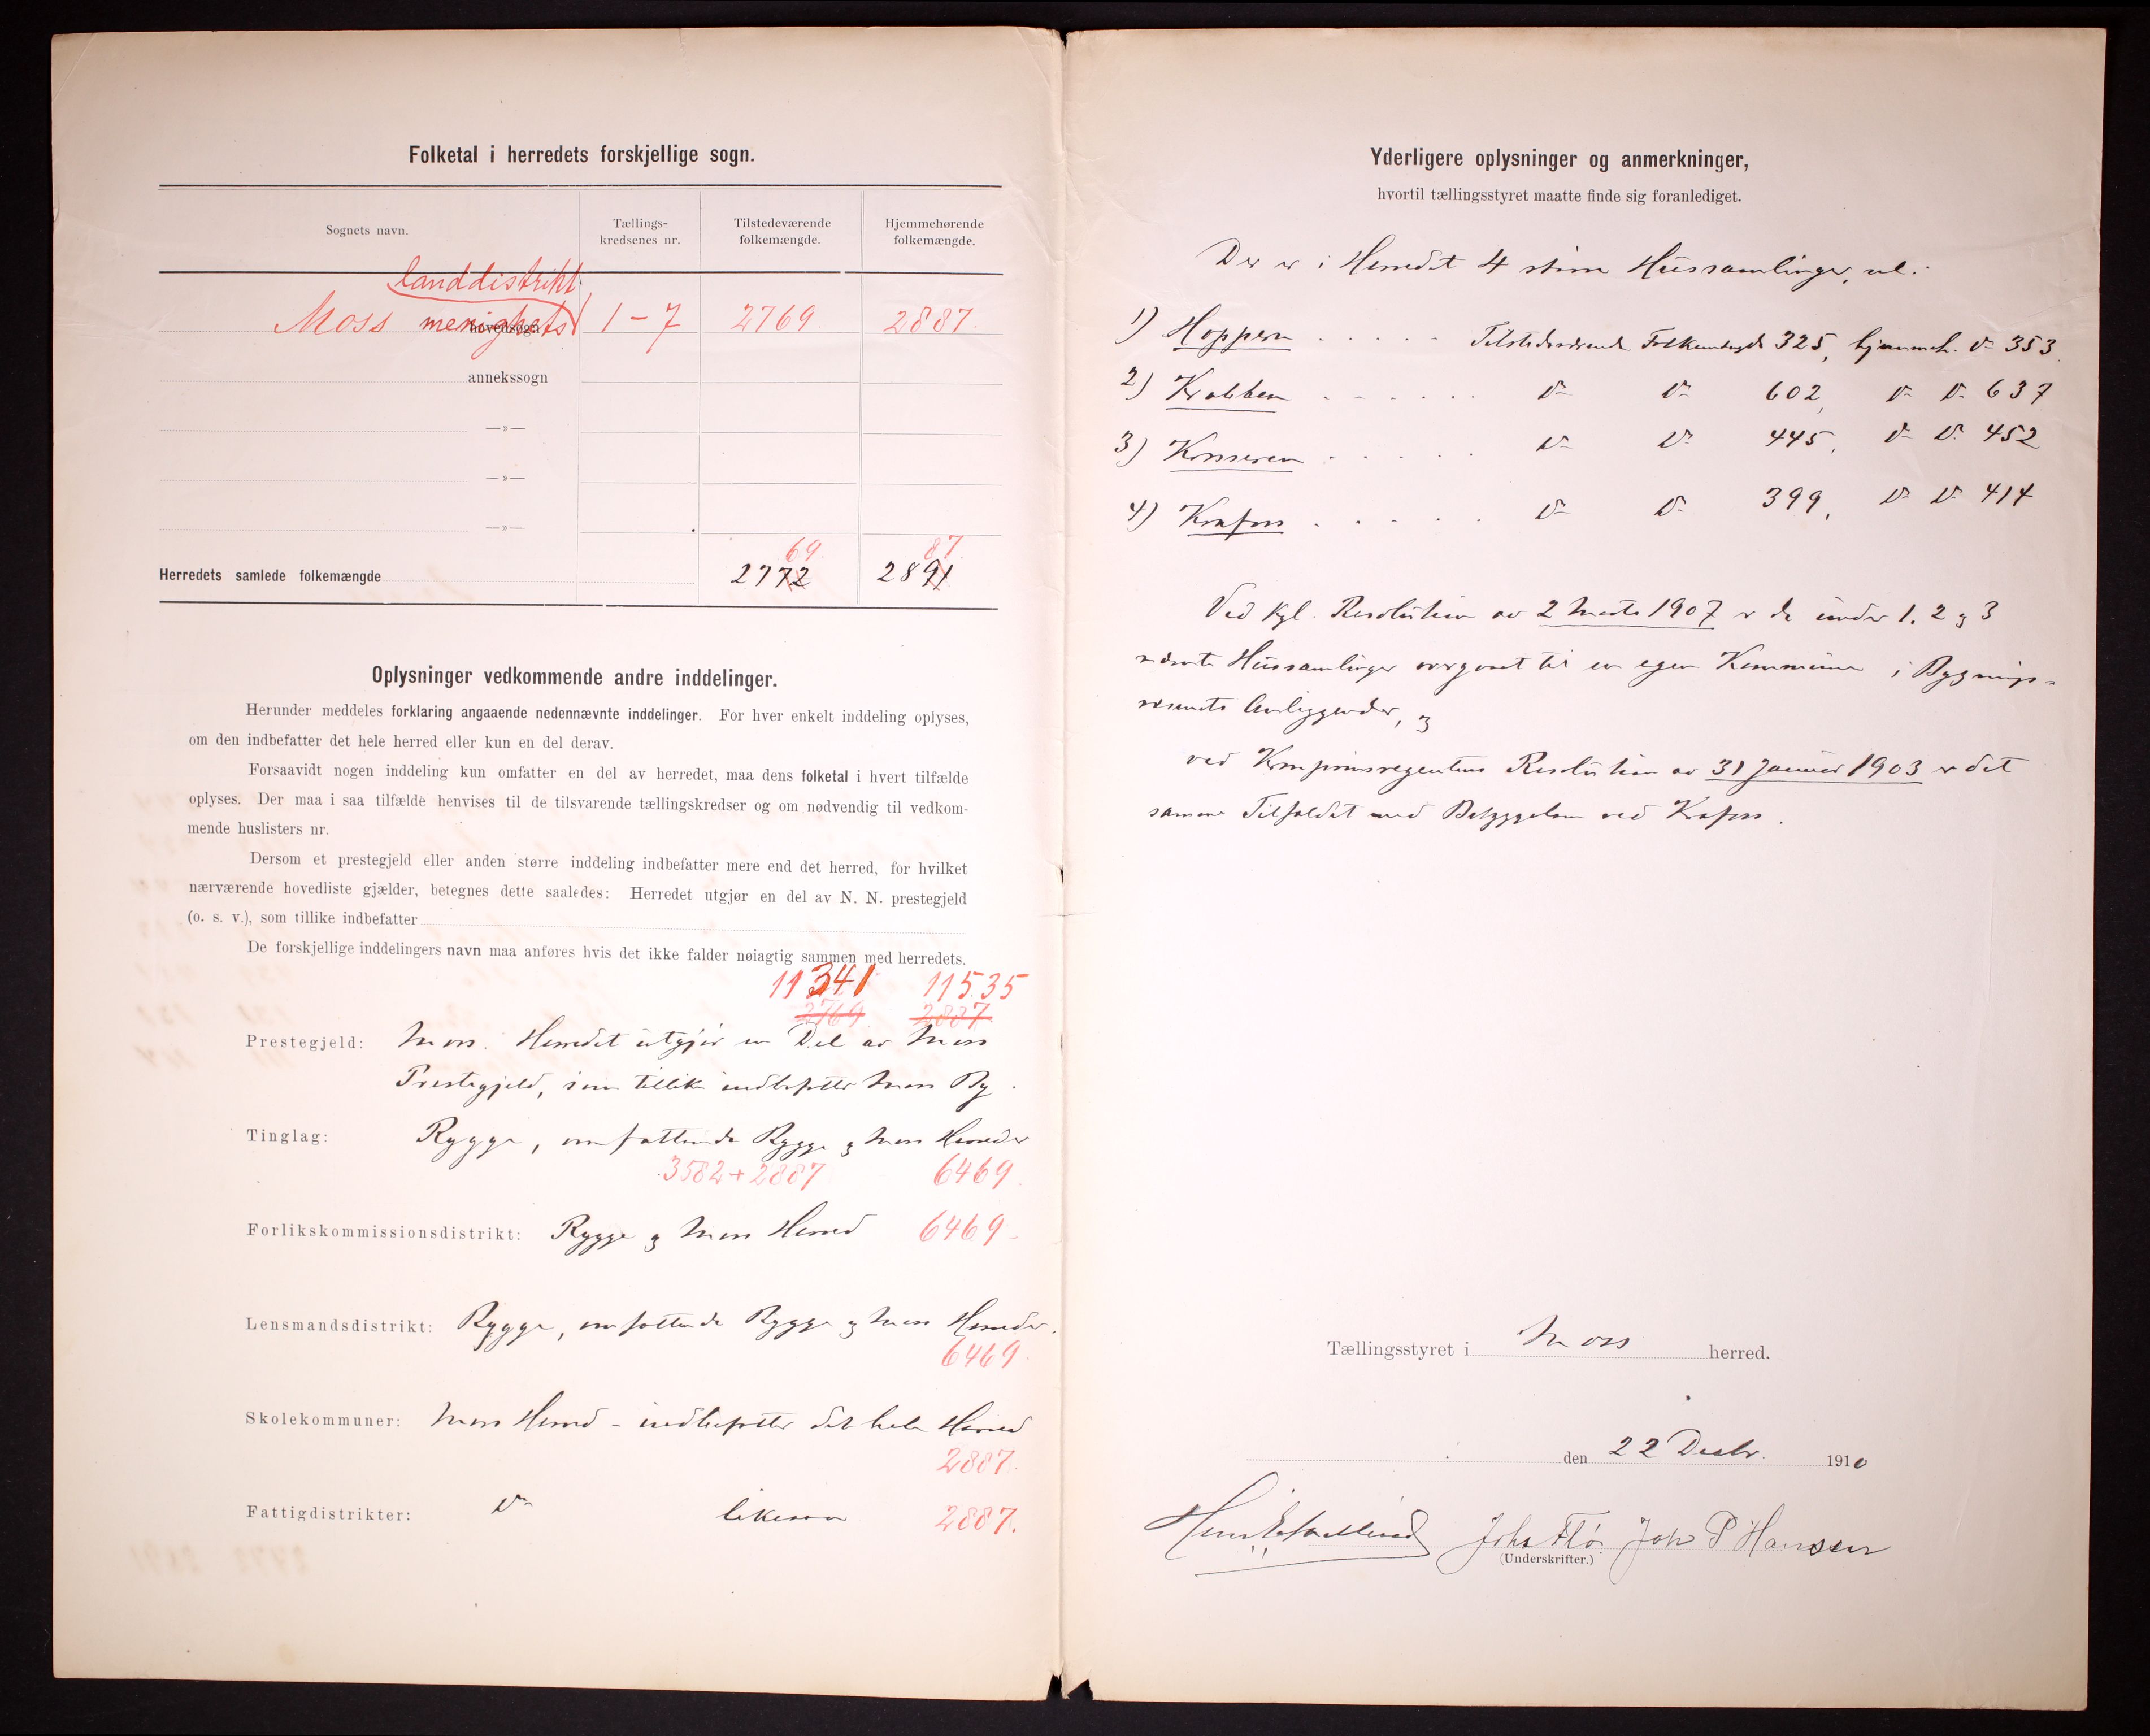 Folketal i herredets forskjellige sogn.
Sognets navn.
Tællings-
kredsenes nr.
Tilstedeværende
folkemængde.
Hjemmehørende
folkemængde.
landdistrikt
Moss menighets hovedsogn 1-7 2769 2887
annekssogn
—»—
—»—
—»—
69 87
Herredets samlede folkemængde 2772 2891
Oplysninger vedkommende andre inddelinger.
Herunder meddeles forklaring angaaende nedennævnte inddelinger. For hver enkelt inddeling oplyses,
om den indbefatter det hele herred eller kun en del derav.
Forsaavidt nogen inddeling kun omfatter en del av herredet, maa dens folketal i hvert tilfælde
oplyses. Der maa i saa tilfælde henvises til de tilsvarende tællingskredser og om nødvendig til vedkom-
mende huslisters nr.
Dersom et prestegjeld eller anden større inddeling indbefatter mere end det herred, for hvilket
nærværende hovedliste gjælder, betegnes dette saaledes: Herredet utgjør en del av N. N. prestegjeld
(o. s. v.), som tillike indbefatter
De forskjellige inddelingers navn maa anføres hvis det ikke falder nøiagtig sammen med herredets.
11341 11535
2769 2887
Prestegjeld: Moss. Herredet utgjør en Del av Moss
Prestegjeld, som tillike indbefatter Moss By.
Tinglag: Rygge, omfattende Rygge og Moss Herreder
3582+2887 6469
Forlikskommissionsdistrikt: Rygge og Moss Herred 6469
Lensmandsdistrikt: Rygge, omfattende Rygge og Moss Herreder.
6469
Skolekommuner: Moss Herred - indbefatter det hele Herred
2887.
Fattigdistrikter: Do likesaa 2887.
Yderligere oplysninger og anmerkninger,
hvortil tællingsstyret maatte finde sig foranlediget.
Der er i Herredet 4 større Hussamlinger, nl.
1) Hoppern . . . . . Tilstedeværende Folkemængde 325, hjemmeh. Do 353.
2) Krabben . . . . . . Do Do 602, Do Do 637
3) Korsseren . . . . . Do Do 445, Do Do 452
4) Krafoss . . . . . Do Do 399, Do Do 414
Ved Kgl. Resolution av 2 Marts 1907 er de under 1. 2 og 3
nævnte Hussamlinger overgaaet til en egen Kommune i Bygnings-
væsenets Anliggender, og
ved Kronprinsregentens Resolution av 31 Januar 1903 er det
samme Tilfældet med Bebyggelsen ved Krafoss.
Tællingsstyret i Moss herred.
den 22 Decbr. 1910
Johs Flø. Joh P Hansen
(Underskrifter.)